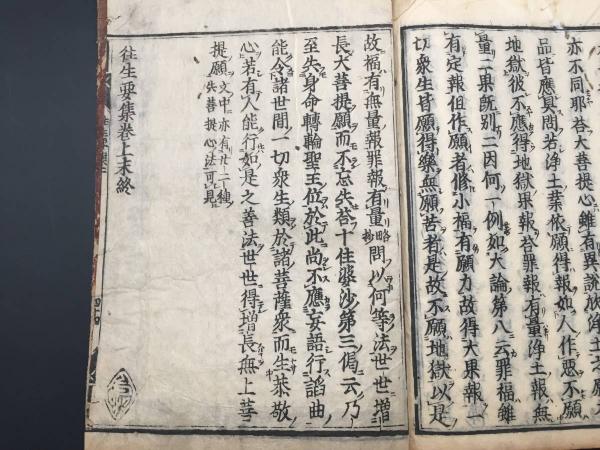 亦不同耶答大菩提心雖有異説於浄土
品皆應具問若浄土業依願得報如人作惡不願
地獄彼不應得地獄果報答罪報有量浄土報無
量二果既別二因何一例如大論第八云罪福雖
有定報但作願者修小福有願力故得大果報一
切衆生皆願得樂無願苦者是故不願地獄以是
故福有無量報罪報有量略抄問以何等法世世増
長大菩提願而不忘失答十住婆沙第三偈云乃
至失身命轉輪聖王位於此尚不應妄語行諂曲
能令諸世間一切衆生類於諸菩薩衆而生恭敬
心若有人能行如是之善法世世得増長無上菩
提願文中亦有廿二種失菩提心法可見
往生要集巻上末終